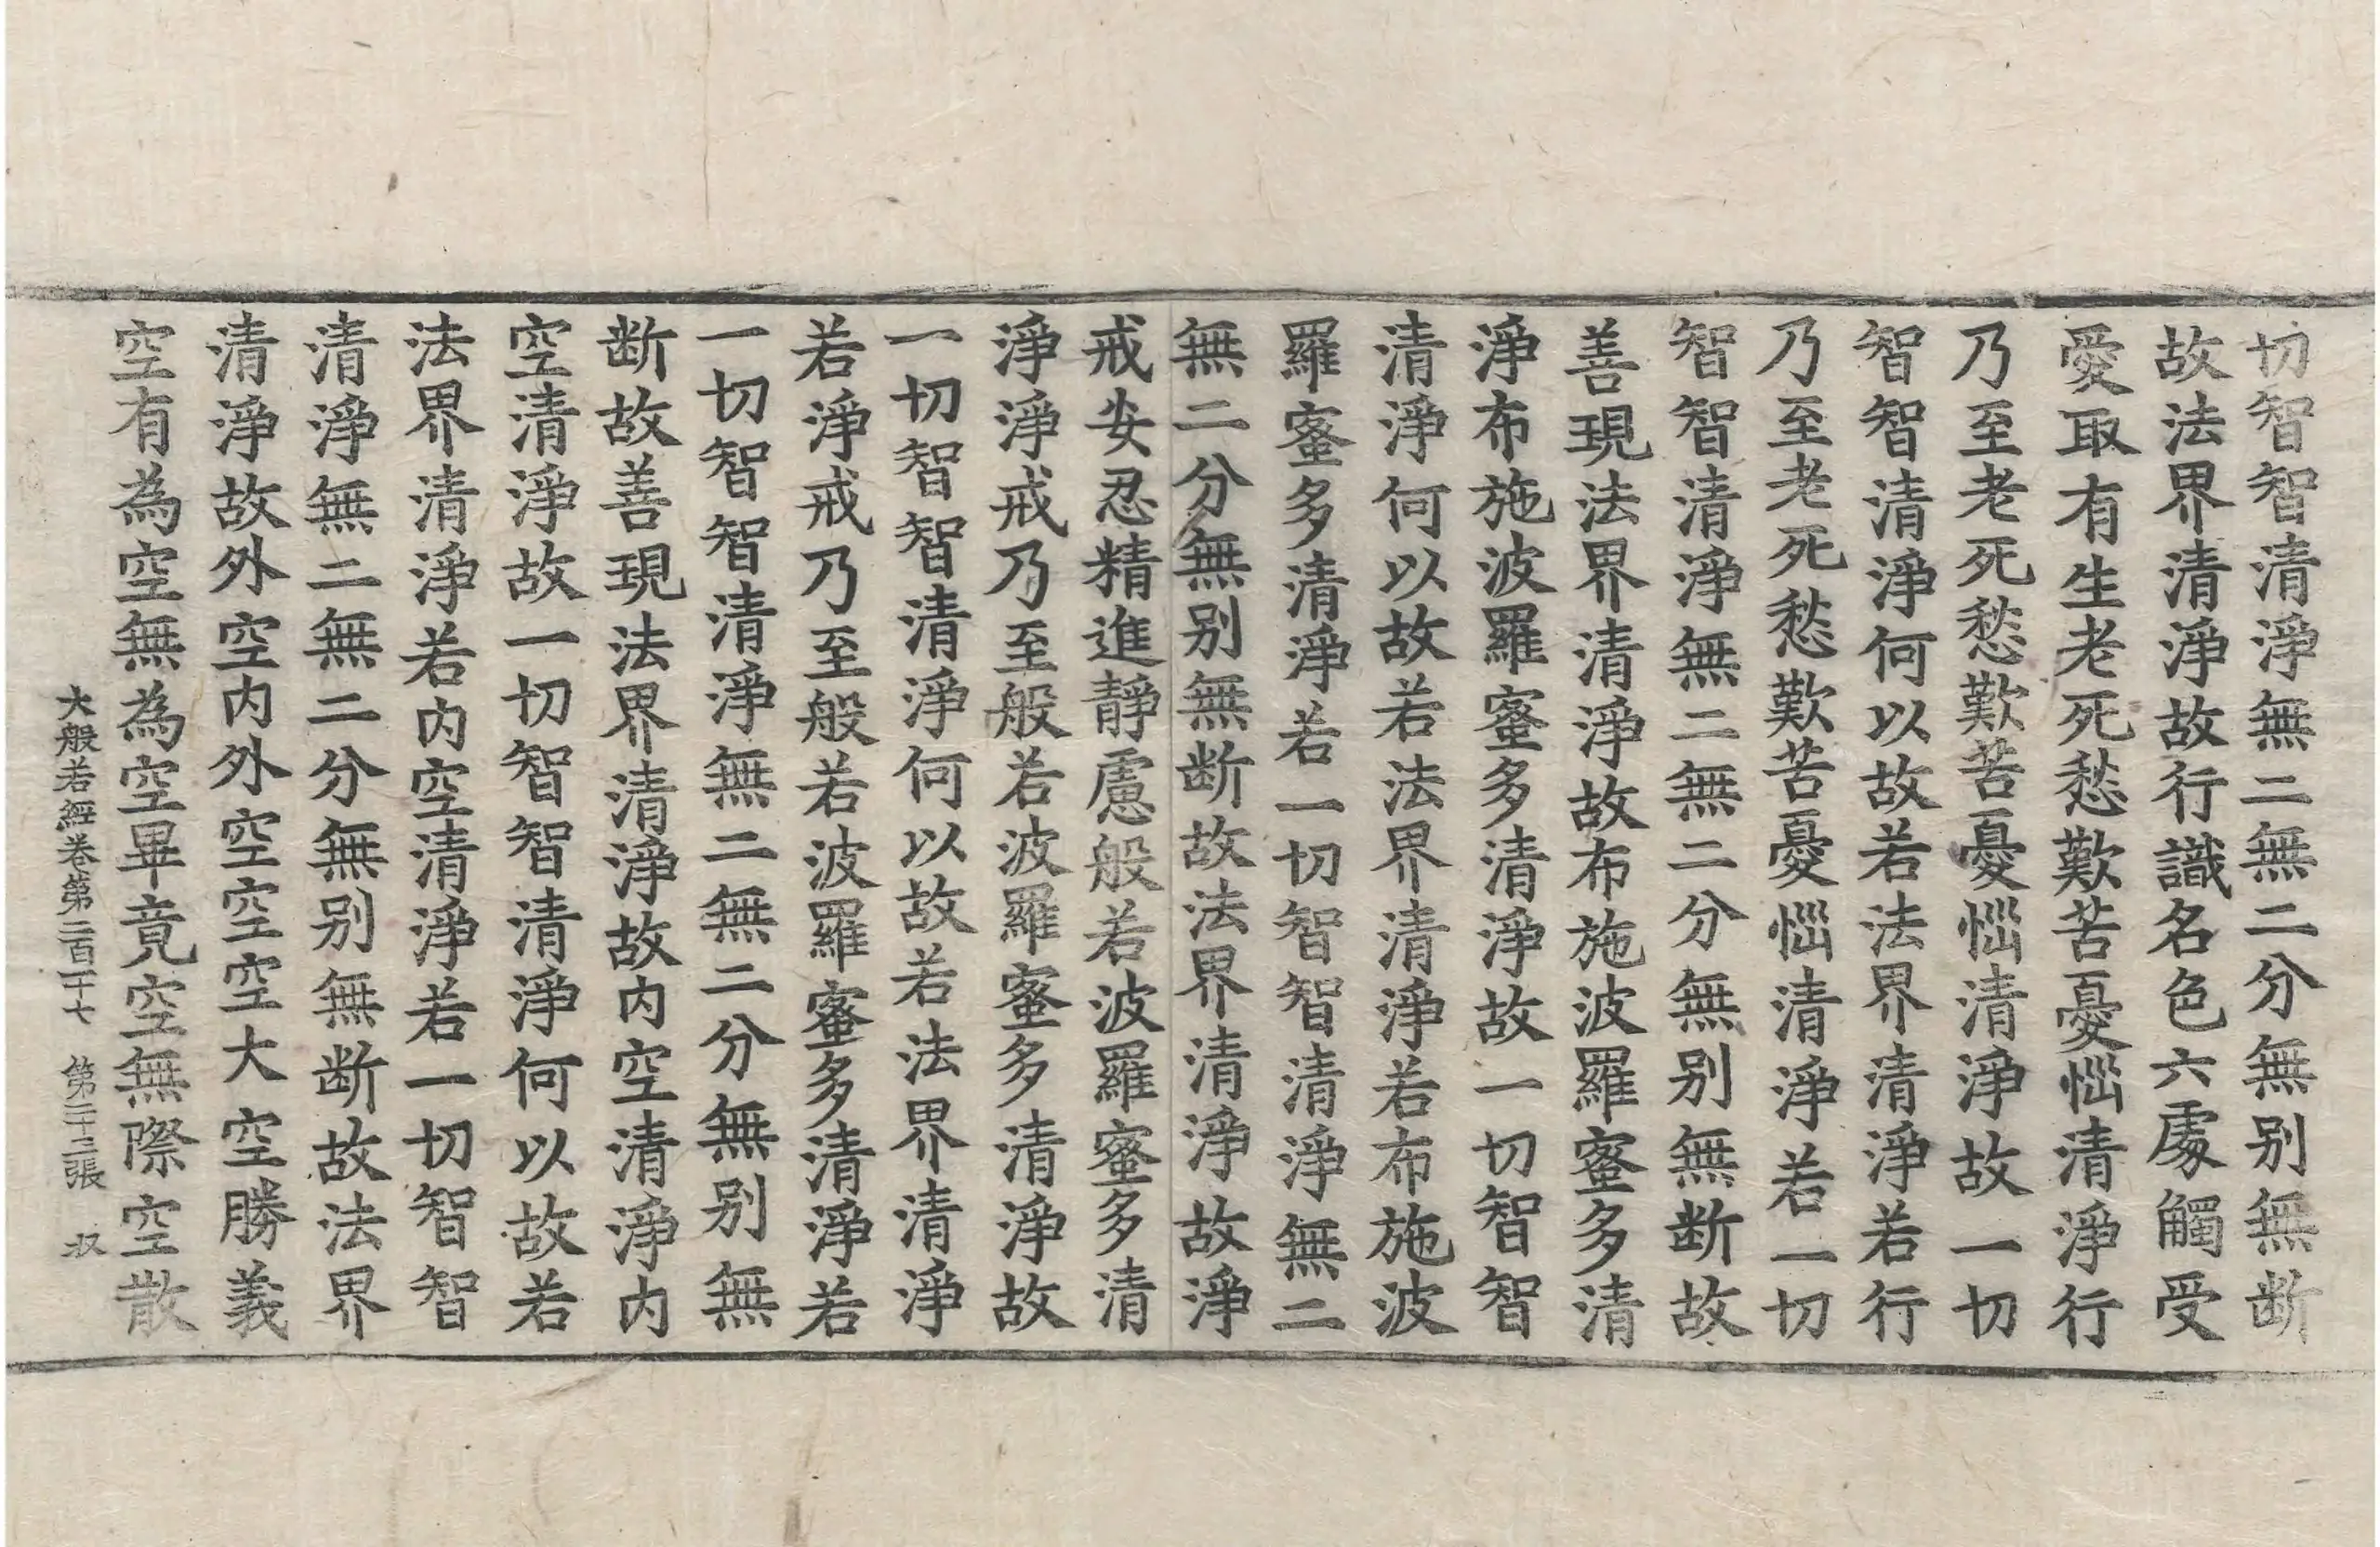 切智智清淨無二無二分無别無断
故法界清淨故行識名色六處觸受
愛取有生老死愁歎苦憂惱清淨行
乃至老死愁歎苦憂惱清淨故一切
智智清淨何以故若法界清淨若行
乃至老死愁歎苦憂惱清淨若一切
智智清淨無二無二分無别無断故
善現法界清淨故布施波羅蜜多清
淨布施波羅蜜多清淨故一切智智
清淨何以故若法界清淨若布施波
羅蜜多清淨若一切智智清淨無二
無二分無别無断故法界清淨故淨
戒安忍精進靜慮般若波羅蜜多清
淨淨戒乃至般若波羅蜜多清淨故
一切智智清淨何以故若法界清淨
若淨戒乃至般若波羅蜜多清淨若
一切智智清淨無二無二分無别無
断故善現法界清淨故内空清淨内
空清淨故一切智智清淨何以故若
法界清淨若内空清淨若一切智智
清淨無二無二分無别無断故法界
清淨故外空内外空空空大空勝義
空有為空無為空畢竟空無際空散
大般若經卷第二百一十七 第二十三張 奴